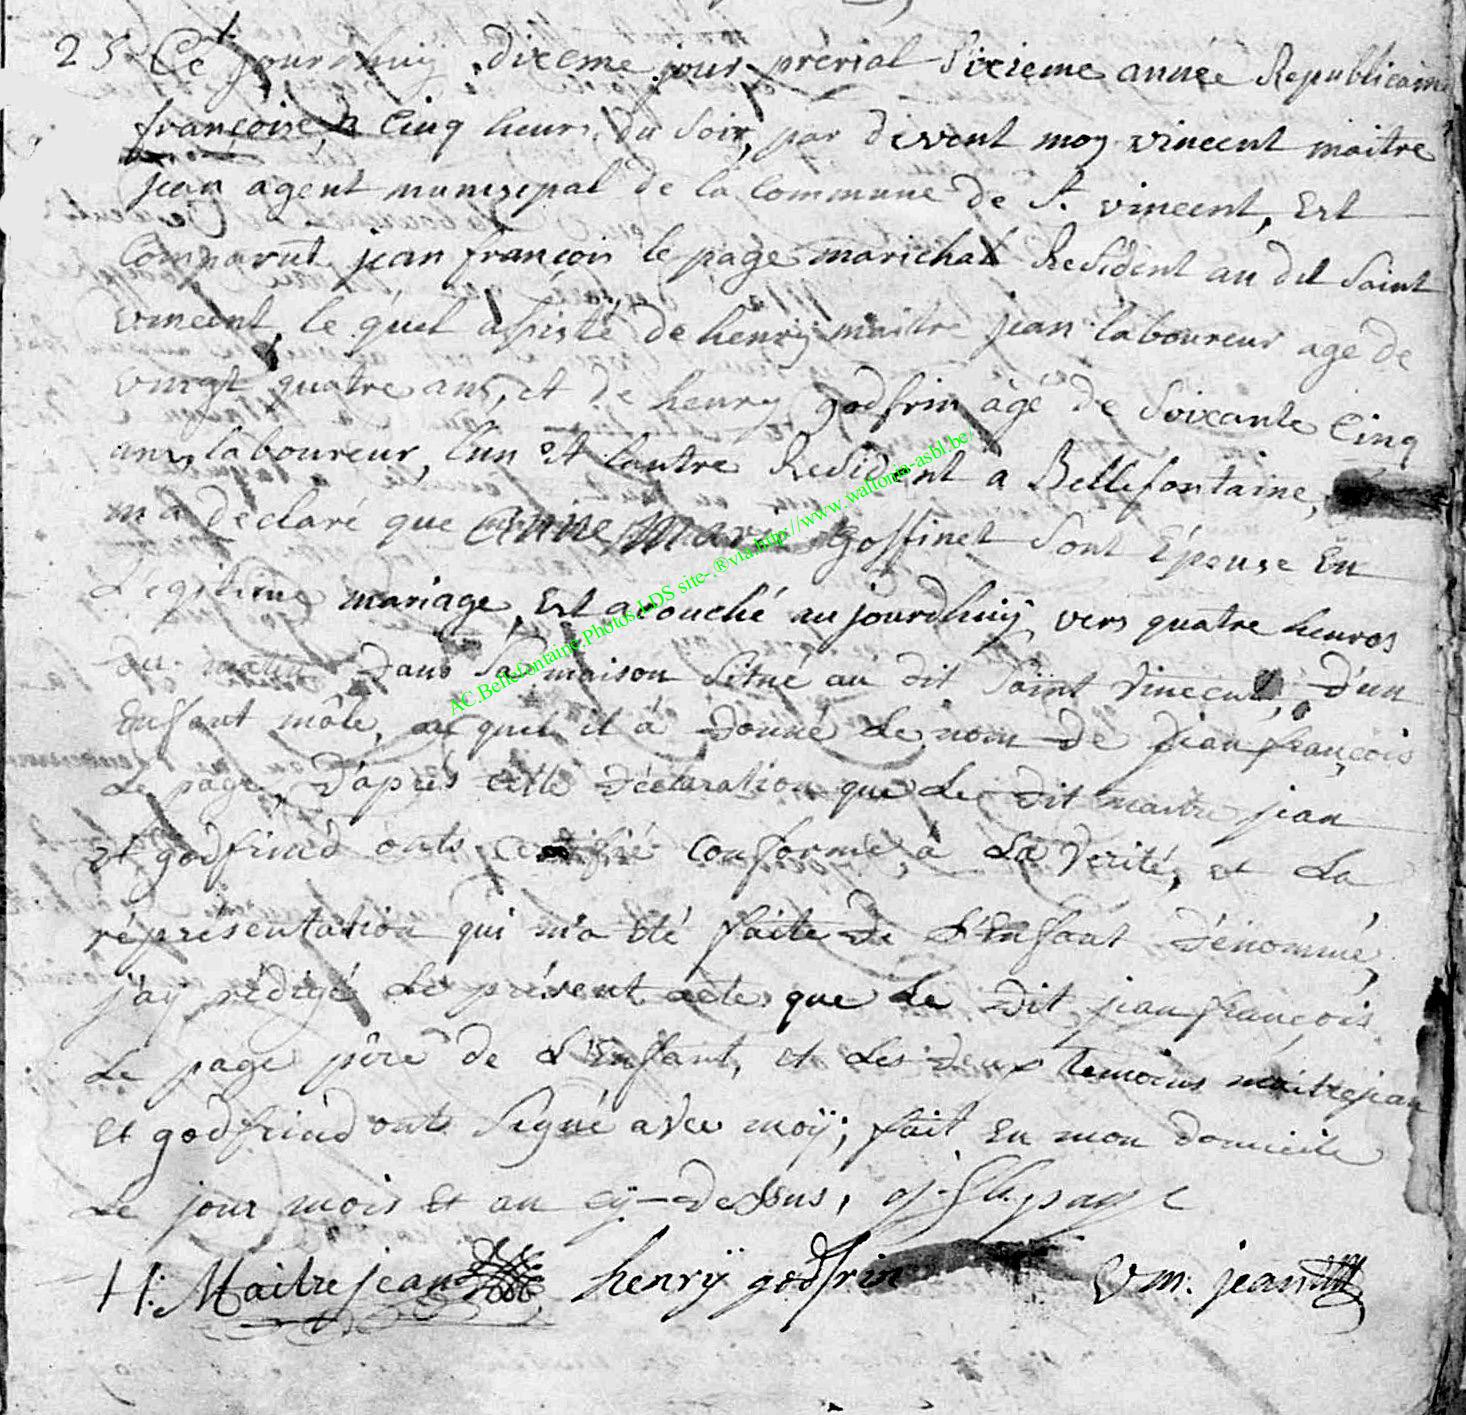 25 Cet jourdhuij dixeme jour prerial Sixieme année Republicaine
françoise, a Cinq heurs du Soir, par devent moy vincent maitre
jean agent munisipal de la Commune de St. vincent, Est
Comparut jean françois le page marichal Resident au dit Saint
vincent, le quel assisté de henry maitre jean laboureur agé de
vingt quatre ans, et de henry godfrin âgé de Soixante Cinq
ans, laboureur, l'un et lautre Resident a Bellefontaine,
m'a déclaré que anne Marie Goffinet Sont Epouse En
Légitime mariage, Est acouché aujourdhuij vers quatre heures
du dans Sa maison Situé au dit Saint Vincent, d'un
Enfant mâle, au quel il à donné le nom de jean françois
Le page, d'après cette déclaration que Le dit maitre jean
et godfrind onts certifié Conforme à La Verité, et La
réprésentation qui m'a été faite de L'Enfant dénommé,
j'aÿ rédigé Le présent acte que Le dit jean françois
Le page père de L'Enfant, et Les deux temoins maitrejean
et godfrind onts Signé avec moÿ; fait En mon domicile
Le jour mois et an cÿ-dessus, j f lepage
H: Maitrejean henrÿ godfrin V m. jean
AC.Bellefontaine.Photos.LDS site-.®via.http://www.waltonia-asbl.be/